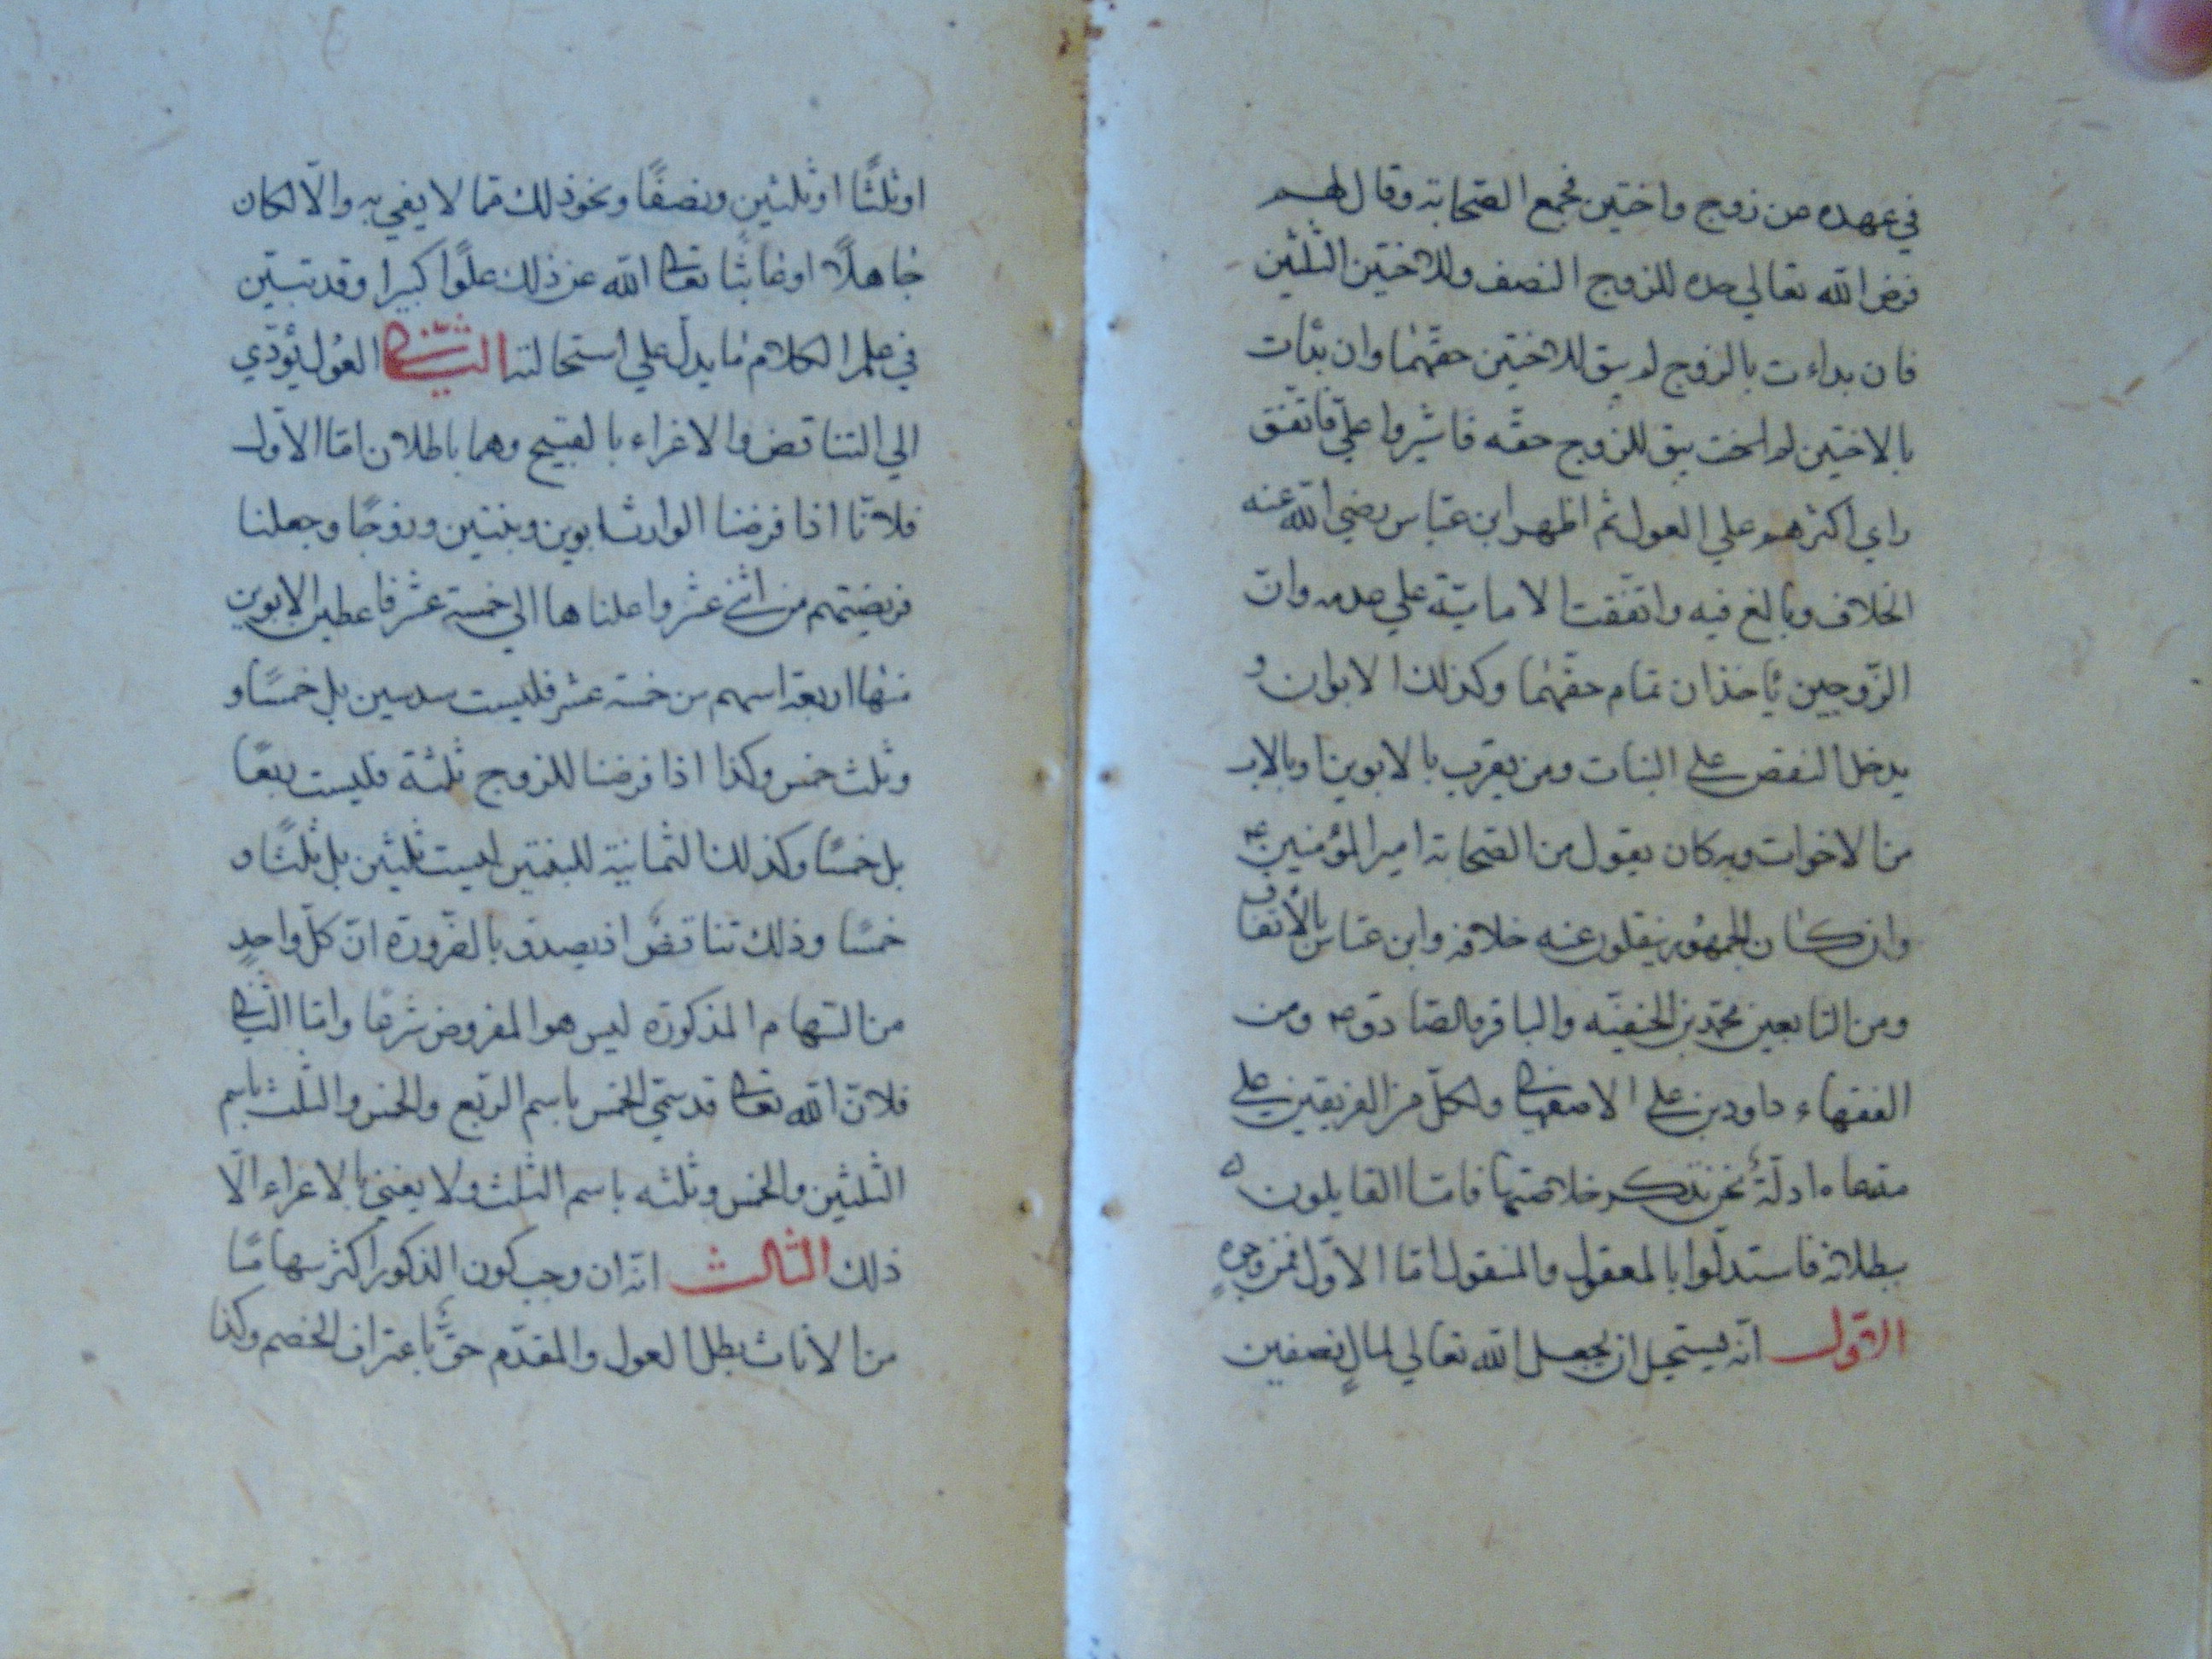 في عهده عن زوج واختين فجمع الصحابة وقال لهم
فرض الله تعالي جده للزوج النصف وللاختين الثلثين
فان بداءت بالزوج لم يبق للاختين حقهما وان بدأت
بالاختين لم يبق للزوج حقه فاشيروا علي فاتفق
راي اكثرهم علي العول ثم اظهر ابن عباس رضي الله عنه
الخلاف وبالغ فيه واتفقت الامامية علي عدمه وان
الزوجين يأخذان تمام حقهما وكذلك الابوان و
يدخل النقص علي البنات ومن يقرب بالابوين وبالاب
من الاخوات وبه كان يقول من الصحابة امير المؤمنين ع
وان كان الجمهور ينقلون عنه خلافه وابن عباس بالاتفاق
ومن التابعين محمد بن الحنفيه والباقر والصادق ع ومن
الفقهاء داود بن علي الاصفهاني ولكل من الفريقين علي
مدعاه ادلة نحن نذكر خلاصتها فاما القايلون
ببطلانه فاستدلوا بالمعقول والمنقول اما الاول فمن وجوه
الاول انه يستحيل ان يجعل الله تعالي لمال نصفين
او ثلثا او ثلثين ونصفا ونحو ذلك مما لا يفي به والا لكان
جاهلا او عابثا تعالي الله عن ذلك علوا كبيرا وقد تبين
في علم الكلام ما يدل علي استحالته الثاني العول يؤدي
الي التناقض والاغراء بالقبيح وهما باطلان اما الاول
فلانا اذا فرضنا الوارث ابوين وبنتين وزوجا وجعلنا
فريضتهم من اثني عشر واعلناها الي خمسة عشر فاعطينا الابوين
منها اربعة اسهم من خمسة عشر فليست سدسين بل خمسا و
وثلث خمس وكذا اذا فرضنا للزوج ثلثة فليست ربعا
بل خمسا وكذلك الثمانية للبنتين ليست ثلثين بل ثلثا و
خمسا وذلك تناقض اذ يصدق بالضرورة ان كل واحد
من السهام المذكورة ليس هو المفروض شرعا واما الثاني
فلان الله تعالي قد سمي الخمس باسم الربع والخمس والثلث باسم
الثلثين والخمس وثلثه باسم الثلث ولا يعني بالاغراء الا
ذلك الثالث انه ان وجب كون الذكور اكثر سهاما
من الاناث بطل العول والمقدم حق باعتراف الخصم وكذا